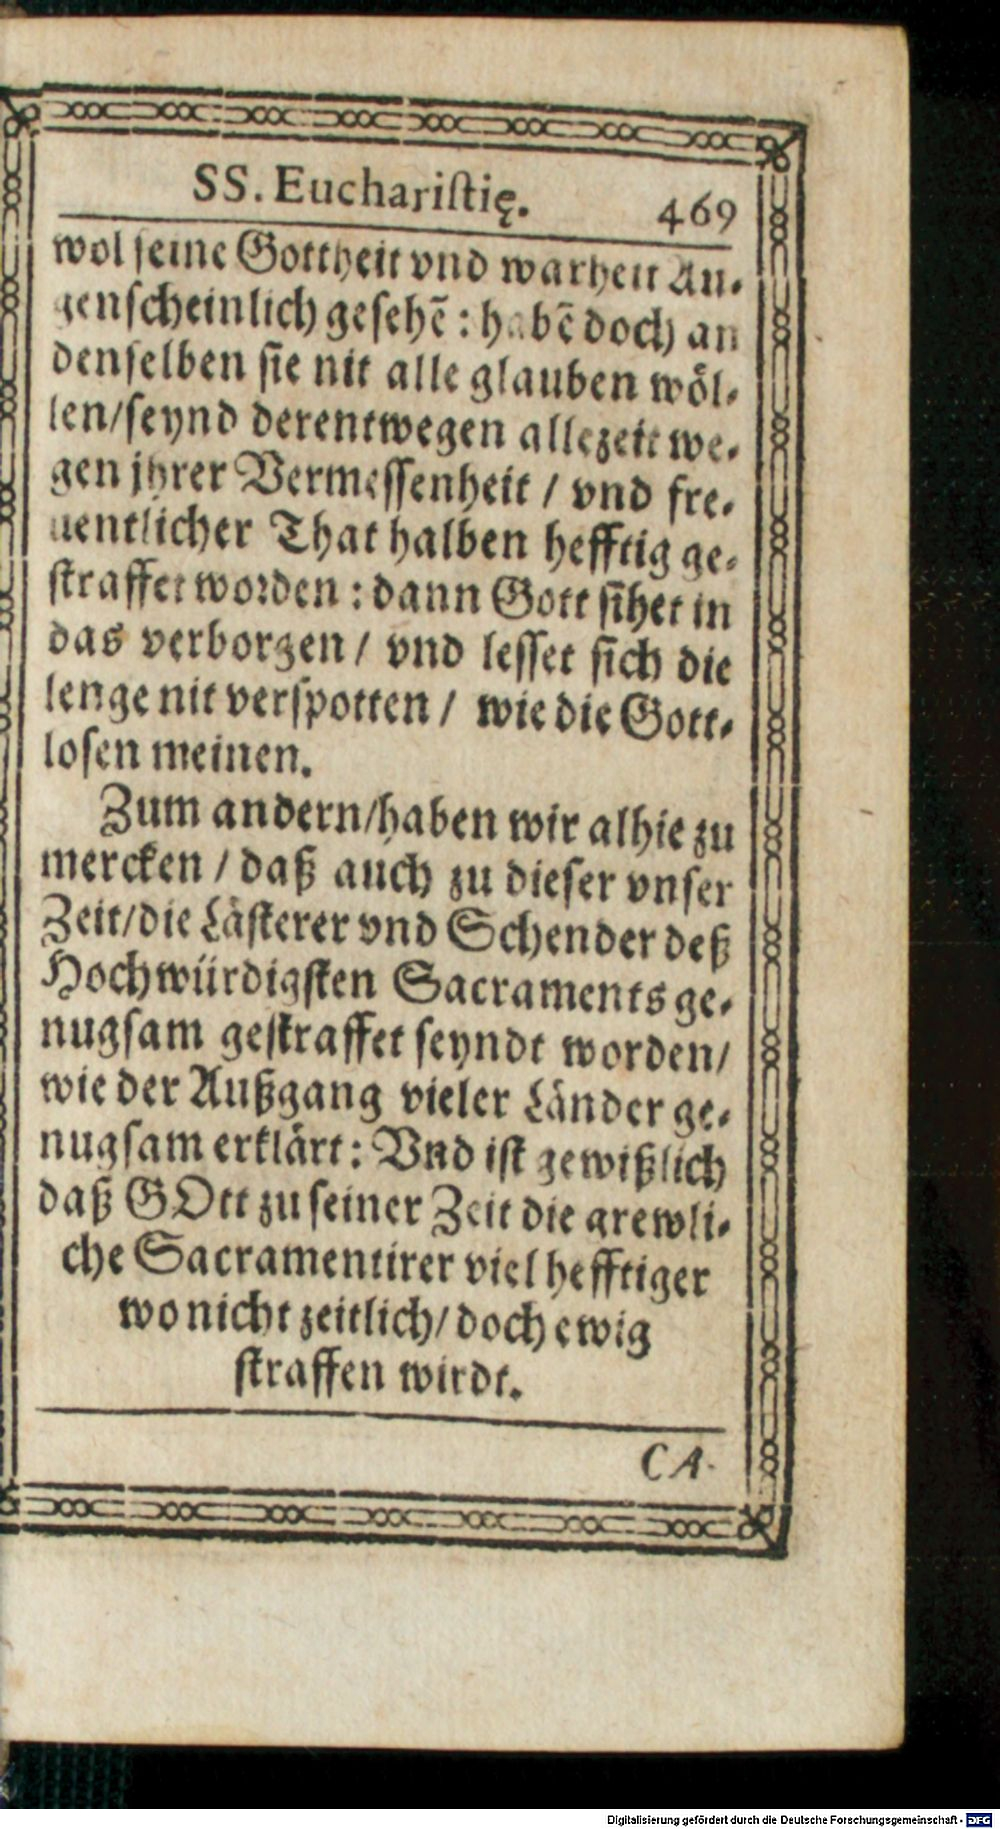 SS. Euchariſtię. 469
wol ſeine Gottheit vnd warheit Au-
genſcheinlich geſehē : habē doch an
denſelben ſie nit alle glauben wöl-
len/ſeynd derentwegen allezeit we-
gen jhrer Vermeſſenheit / vnd fre-
uentlicher That halben hefftig ge-
ſtraffet worden : dann Gott ſihet in
das verborgen / vnd leſſet ſich die
lenge nit verſpotten / wie die Gott-
loſen meinen.
Zum andern/haben wir alhie zu
mercken / daß auch zu dieſer vnſer
Zeit/die Läſterer vnd Schender deß
Hochwürdigſten Sacraments ge-
nugſam geſtraffet ſeyndt worden/
wie der Außgang vieler Länder ge-
nugſam erklärt: Vnd iſt gewißlich
daß GOtt zu ſeiner Zeit die grewli-
che Sacramentirer viel hefftiger
wo nicht zeitlich/ doch ewig
ſtraffen wirdt.
CA-
Digitalisierung gefördert durch die Deutsche Forschungsgemeinschaft - DFG